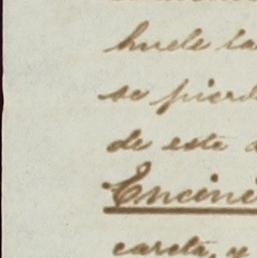 huele la
se pierd
de este
Encine
careta, y